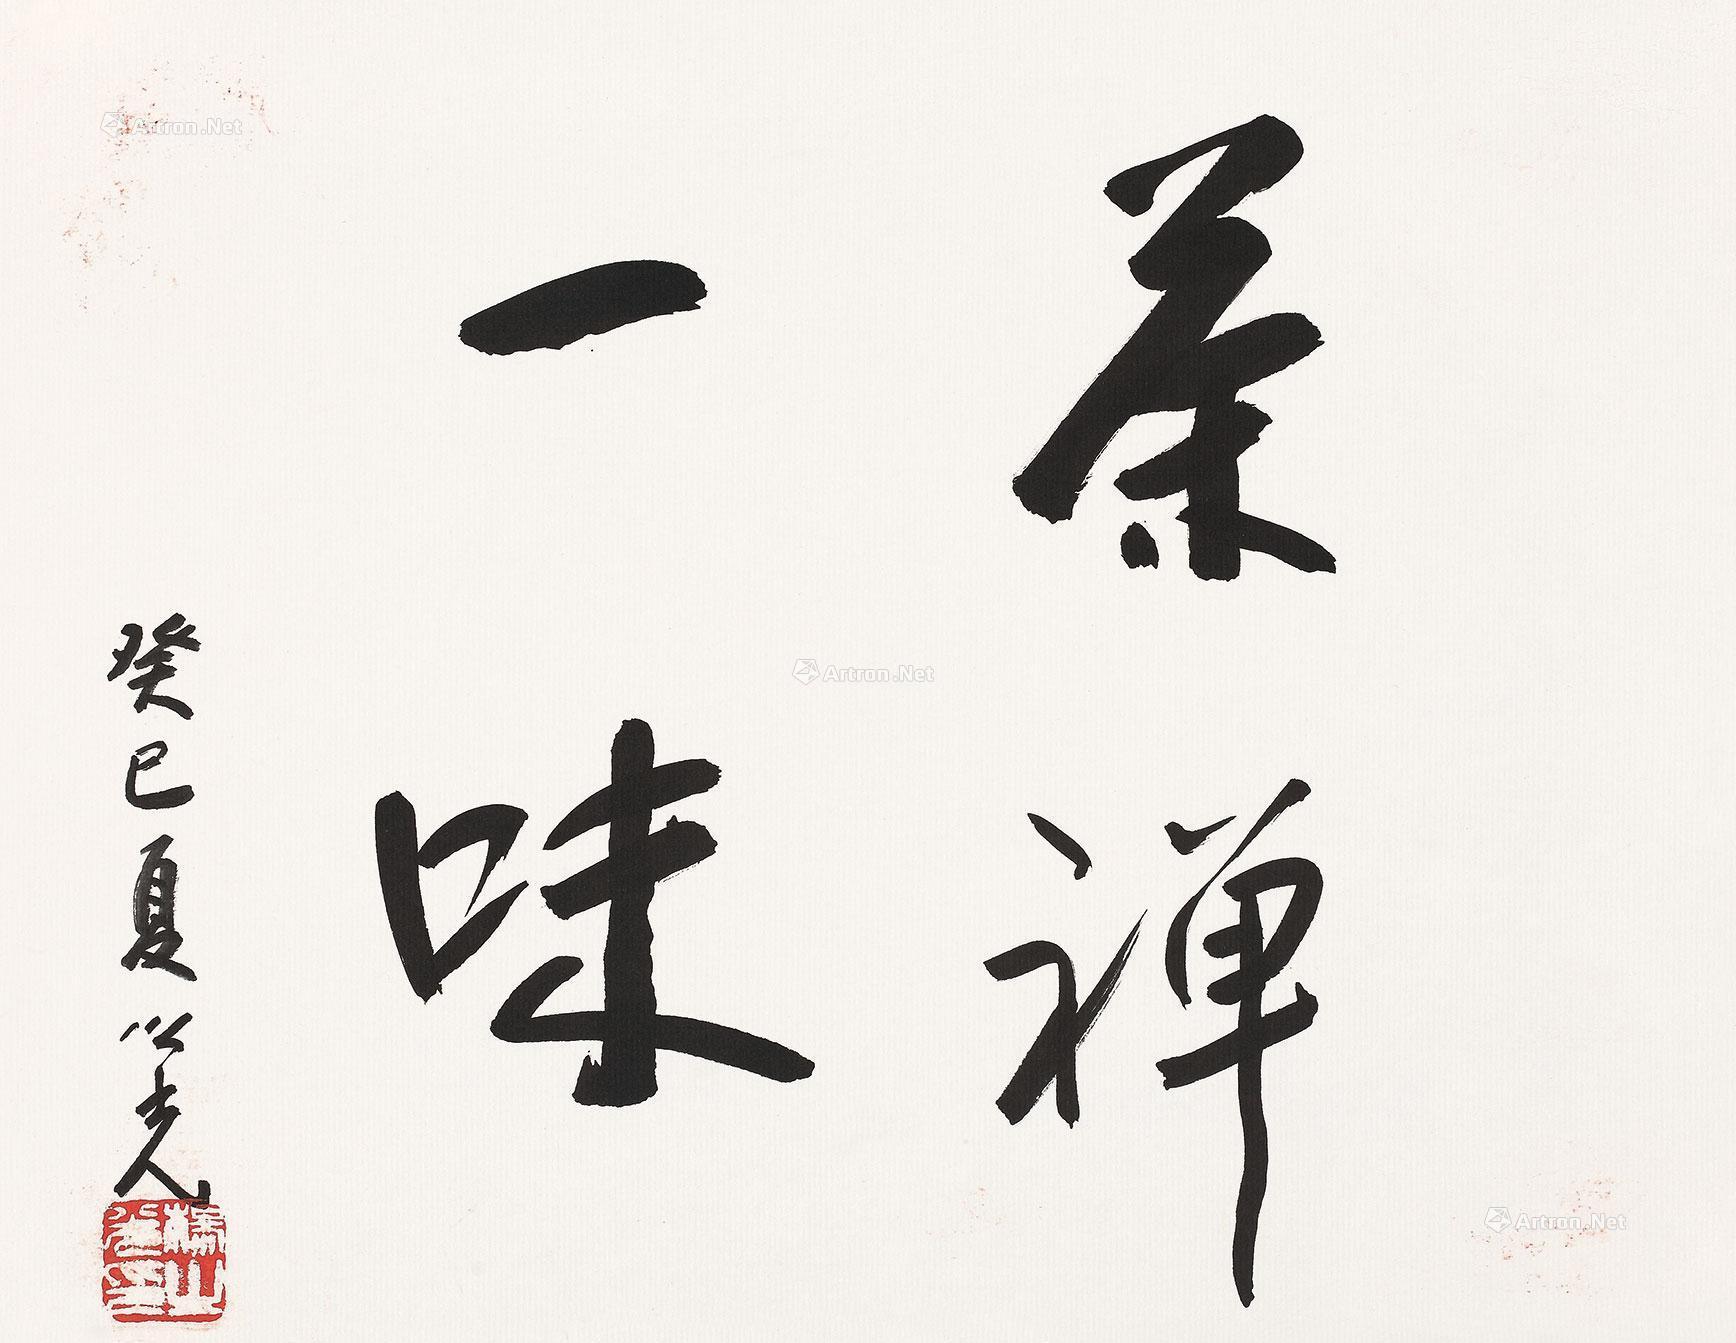 茶禅
一味
癸巳夏
Artron.Net
Artron.Net
Artron.Net